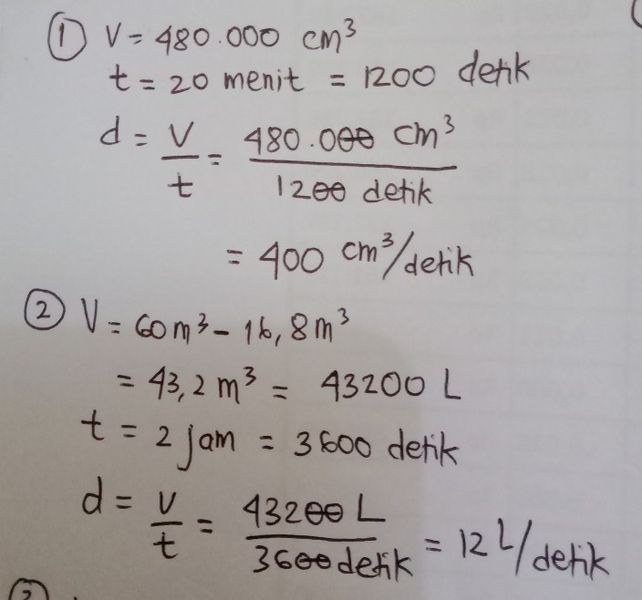 ① V = 480.000 cm³
t = 20 menit = 1200 detik
d = V/t = 480.000 cm³ / 1200 detik
= 400 cm³/detik
② V = 60 m³ - 16,8 m³
= 43,2 m³ = 43200 L
t = 2 jam = 3600 detik
d = V/t = 43200 L / 3600 detik = 12 L/detik